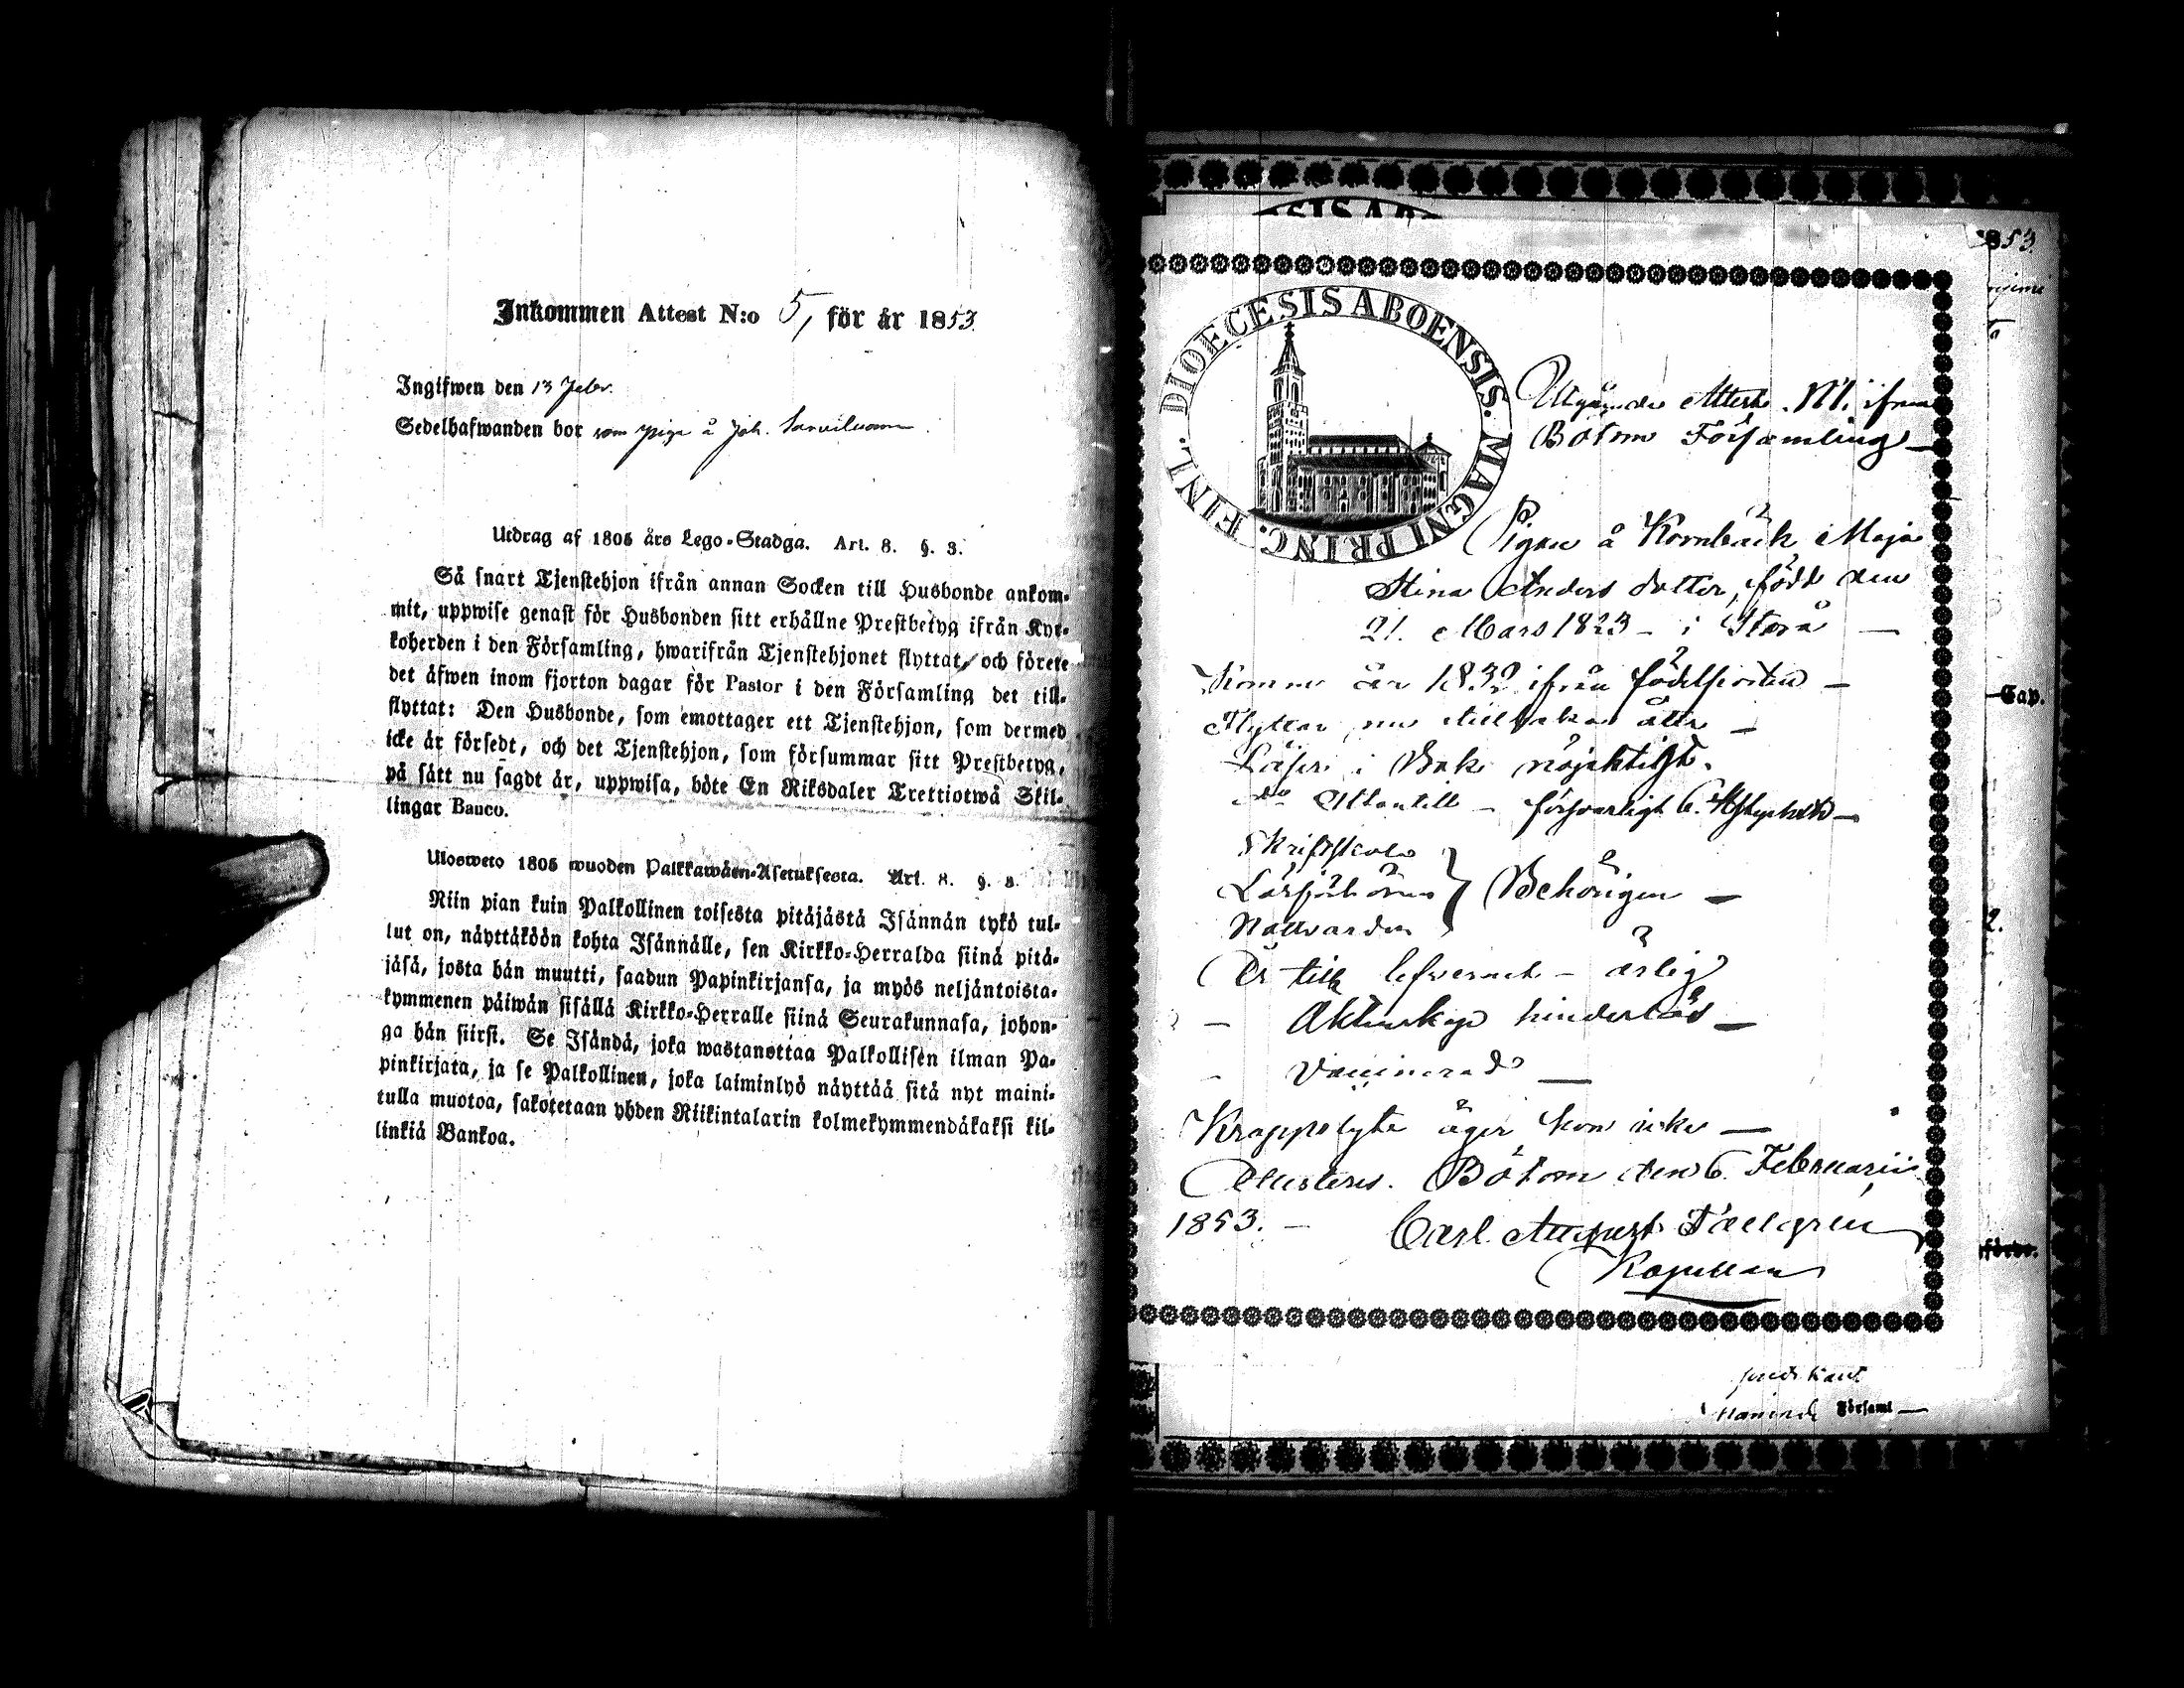 Inkommen Attest N:o 5, för år 1853.
Ingifwen den 13 Febr.
Sedelhafwanden bor som piga å Joh.
Utdrag af 1805 års Lego-Stadga. Art. 8. §. 3.
Så snart Tjenstehjon ifrån annan Socken till Husbonde ankom-
mit, uppwise genast för Husbonden sitt erhållne Prestbetyg ifrån Kyr-
koherden i den Församling, hwarifrån Tjenstehjonet flyttat, och förete
det äfwen inom fjorton dagar för Pastor i den Församling det till-
flyttat: Den Husbonde, som emottager ett Tjenstehjon, som dermed
icke är försedt, och det Tjenstehjon, som försummar sitt Prestbetyg,
på sätt nu sagdt är, uppwisa, böte En Riksdaler Trettiotwå Skil-
lingar Banco.
Ulosweto 1805 wuoden Palkkawäen-Asetuksesta. Art. 8. §. 3.
Niin pian kuin Palkollinen toisesta pitäjästä Isännän tykö tul-
lut on, näyttäköön kohta Isännälle, sen Kirkko-Herralda siinä pitä-
jäsä, josta hän muutti, saadun Papinkirjansa, ja myös neljäntoista-
kymmenen päiwän sisällä Kirkko-Herralle siinä Seurakunnasa, johon-
ga hän siirsi. Se Isändä, joka wastanottaa Palkollisen ilman Pa-
pinkirjata, ja se Palkollinen, joka laiminlyö näyttää sitä nyt maini-
tulla muotoa, sakotetaan yhden Riikintalarin kolmekymmendäkaksi kil-
linkiä Bankoa.
DIOECESIS ABOENSIS. MAGNI PRINC. FINL.
Utgående Attest N 1. ifrån
Bötom Församling
Pigan å Kornbäck Maja
Stina Anders dotter, född den
21. Mars 1823 - i Storå
Kommen år 1832 ifrån födelseorten -
Flyttar nu tillbaka åter -
Läser i Bok nöjaktigt.
do Utantill - försvarligt 6. Hfstycken -
Skriftskola
Läsförhören } Behörigen -
Nattvarden
Är till lefvernet - ärlig
- Äktenskap hinderlös -
- Vaccinerad
Kroppslyte äger hon icke -
Attesteras. Bötom den 6. Februarii
1853. - Carl August Tallgren
Kapellan
853.
Cap.
2.
Församl